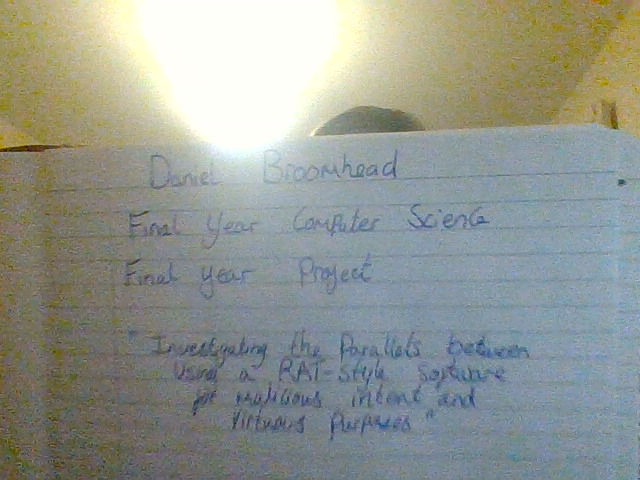 Daniel Broomhead
Final Year Computer Science
Final year Project
"Investigating the Parallels between
using a RAT-Style software
for malicious intent and
virtuous purposes"